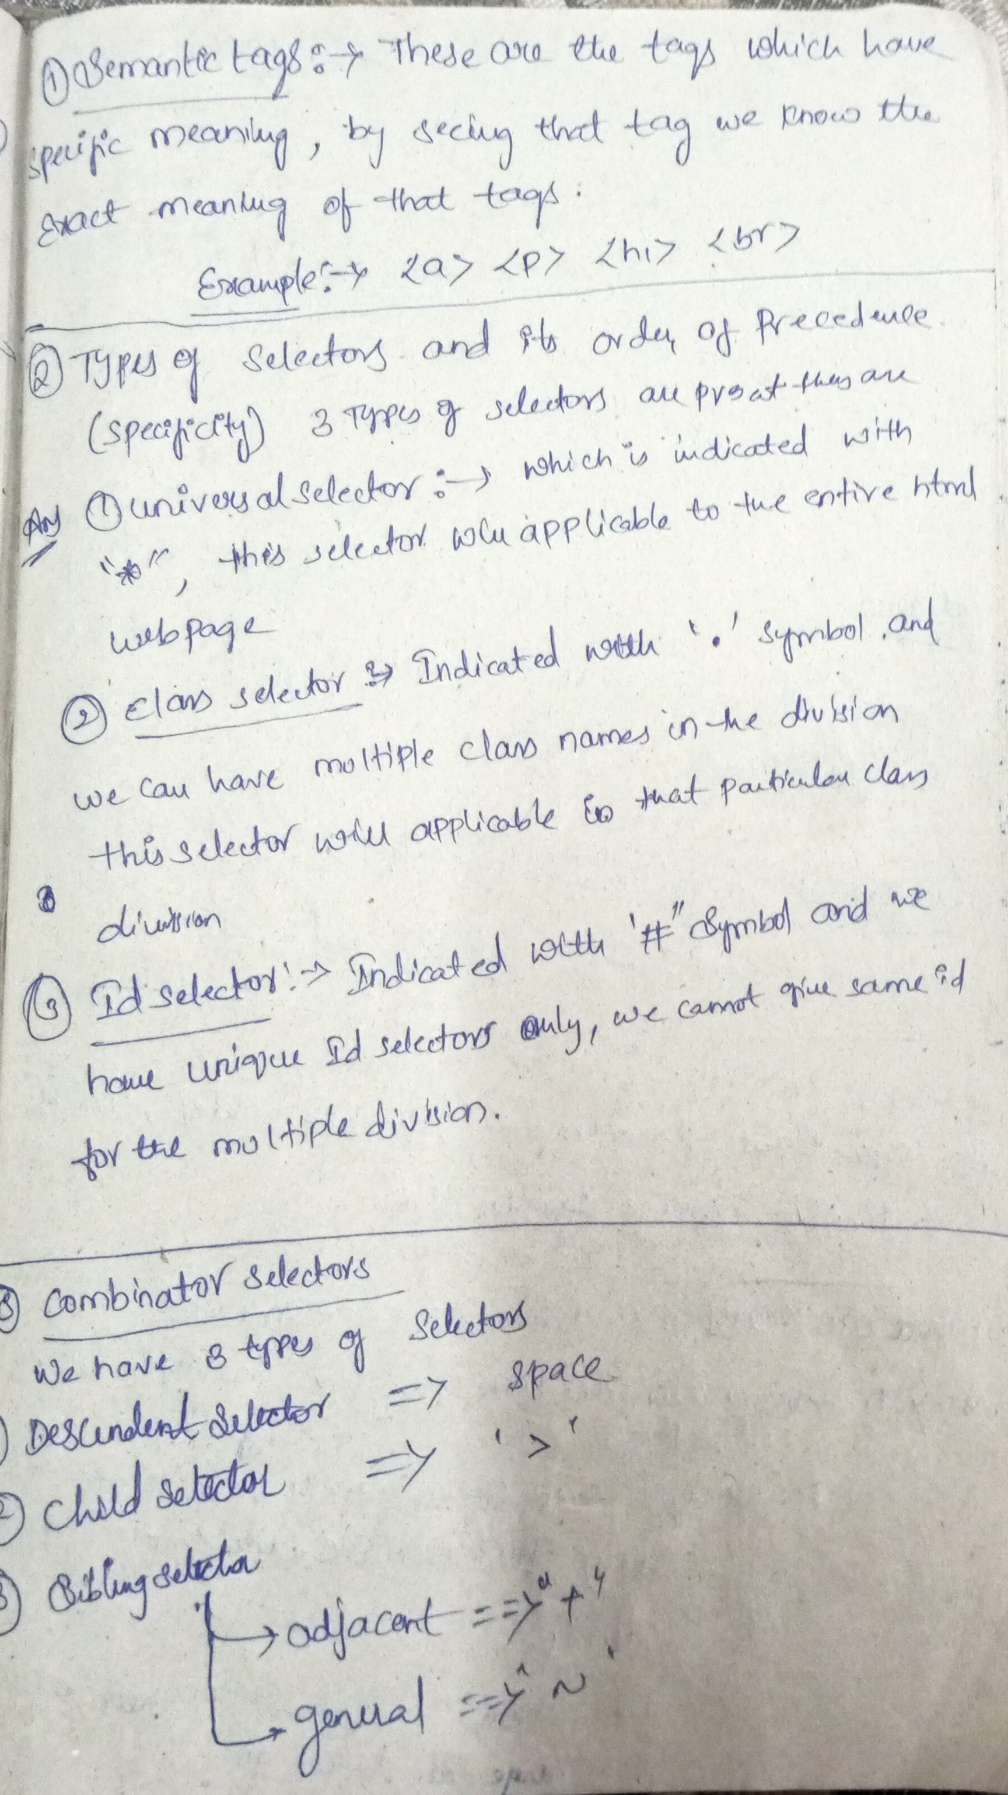 ① Semantic tags :→ These are the tags which have
specific meaning, by seeing that tag we know the
exact meaning of that tags.
Example :→ <a> <p> <h1> <br>
② Types of Selectors and its order of Precedence
(specificity) 3 Types of selectors are present they are
Ans ① universal selector :→ which is indicated with
"*", this selector will applicable to the entire html
webpage
② class selector :→ Indicated with '.' symbol, and
we can have multiple class names in the division
this selector will applicable to that particular class
division
③ Id selector :→ Indicated with '#" Symbol and we
have unique Id selectors only, we cannot give same id
for the multiple division.
③ Combinator selectors
We have 3 types of Selectors
① Descendent Selector => space
② Child selector => '>'
③ Sibling selector
→ adjacent ==> "+"
→ general ==> '~'